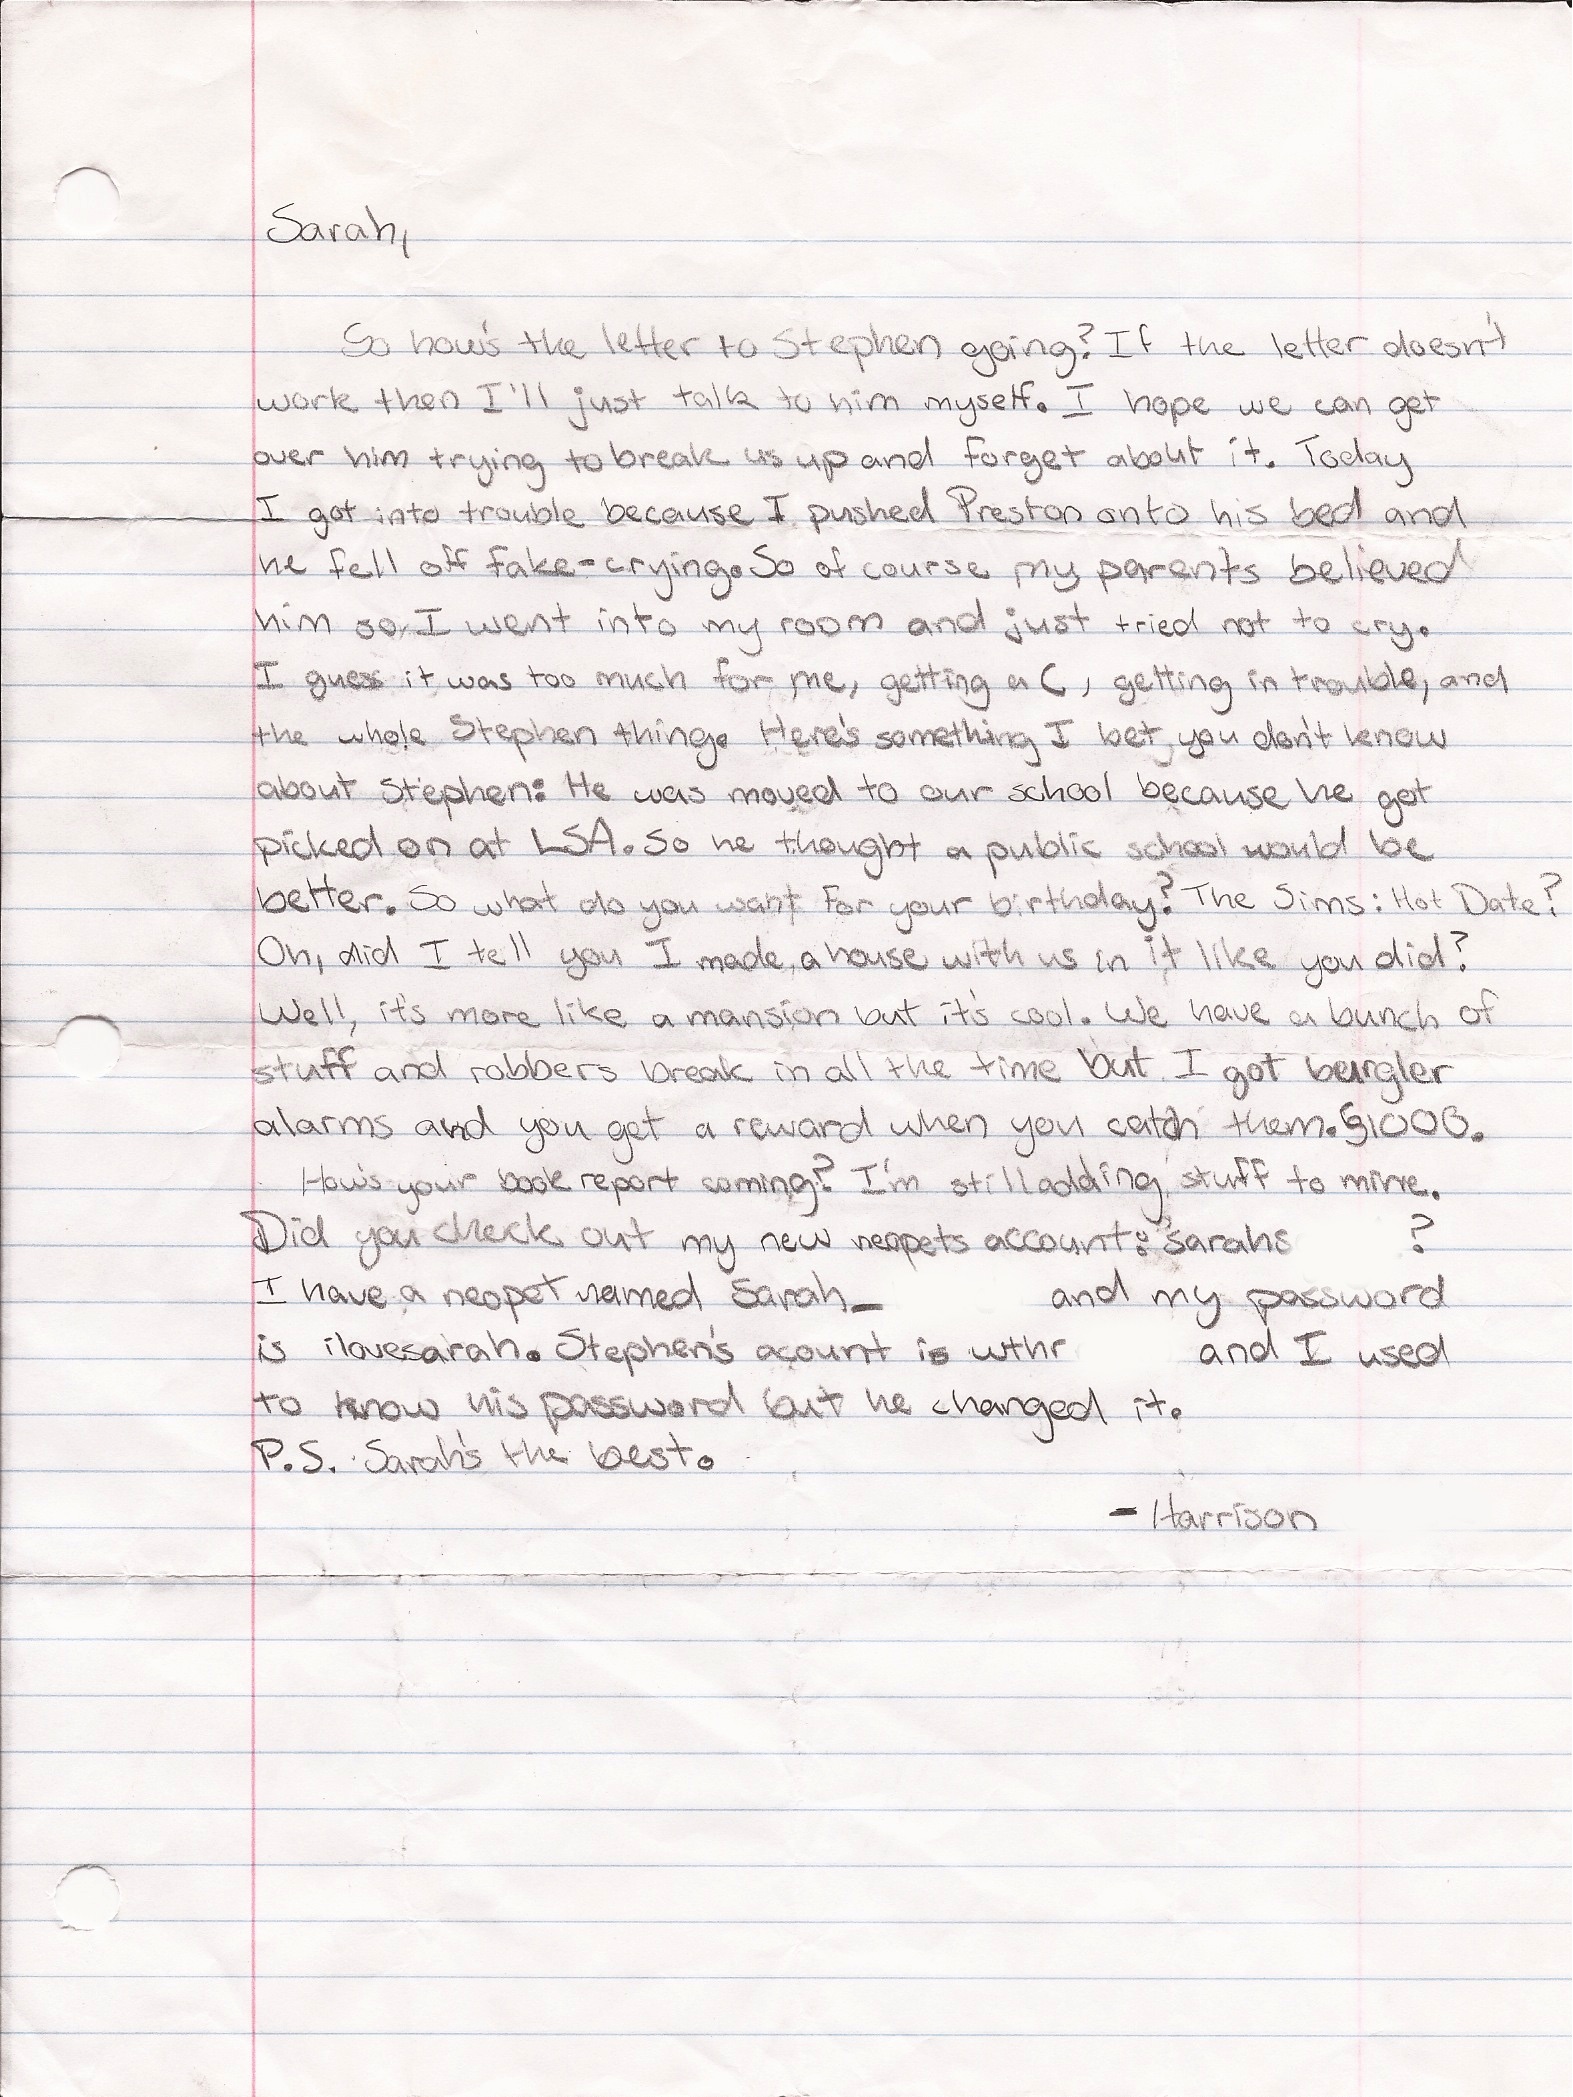 Sarah,
So how's the letter to Stephen going? If the letter doesn't
work then I'll just talk to him myself. I hope we can get
over him trying to break us up and forget about it. Today
I got into trouble because I pushed Preston onto his bed and
he fell off fake-crying. So of course my parents believed
him so I went into my room and just tried not to cry.
I guess it was too much for me, getting a C, getting in trouble, and
the whole Stephen thing. Here's something I bet you don't know
about Stephen: He was moved to our school because he got
picked on at LSA. So he thought a public school would be
better. So what do you want for your birthday? The Sims: Hot Date?
Oh, did I tell you I made a house with us in it like you did?
Well, it's more like a mansion but it's cool. We have a bunch of
stuff and robbers break in all the time but I got burgler
alarms and you get a reward when you catch them. §1000.
How's your book report coming? I'm still adding stuff to mine.
Did you check out my new neopets account: sarahs ?
I have a neopet named Sarah_ and my password
is ilovesarah. Stephen's acount is wthr and I used
to know his password but he changed it.
P.S. Sarah's the best.
- Harrison